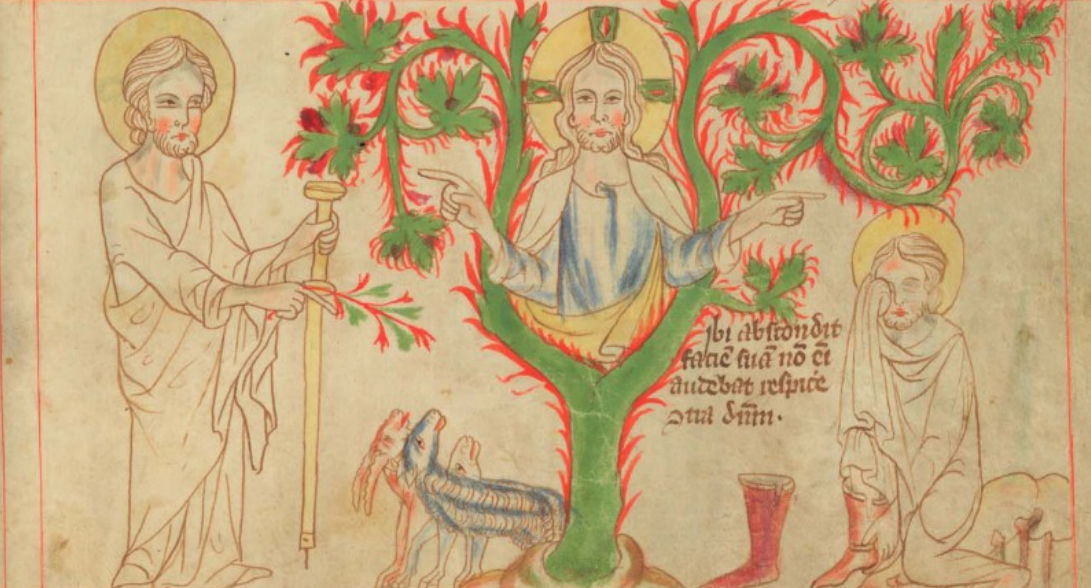 Ibi abscondit
faciē suā nō ēī
audebat respicē
ɔtͣa dn̄m.